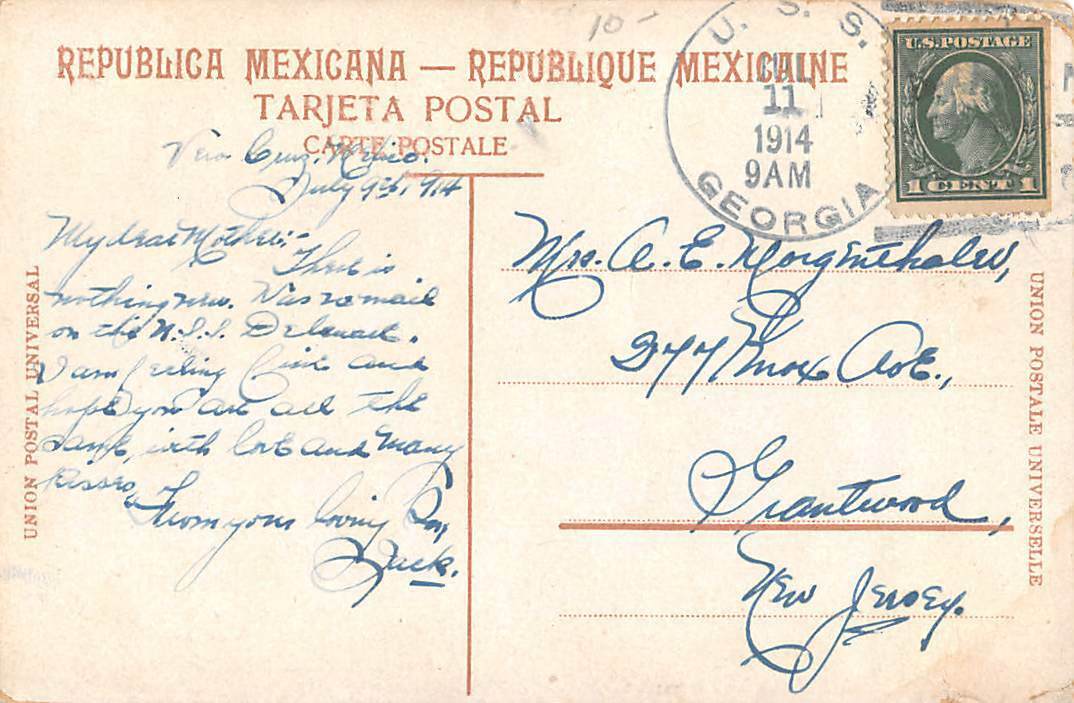 10-
U. S. S.
JUL
11
1914
9AM
GEORGIA
U.S. POSTAGE
1 CENT 1
REPUBLICA MEXICANA — REPUBLIQUE MEXICAINE
TARJETA POSTAL
CARTE POSTALE
UNION POSTAL UNIVERSAL
Vera Cruz, Mexico.
July 9th, 1914
My dear Mother:-
There is
nothing new. Was no mail
on the U.S.S. Delaware.
I am feeling fine and
hope you are all the
same, with love and many
kisses,
From your loving Son,
Jack.
Mrs. A. E. Morgenthaler,
277 Knox Ave.,
Grantwood,
New Jersey.
UNION POSTALE UNIVERSELLE